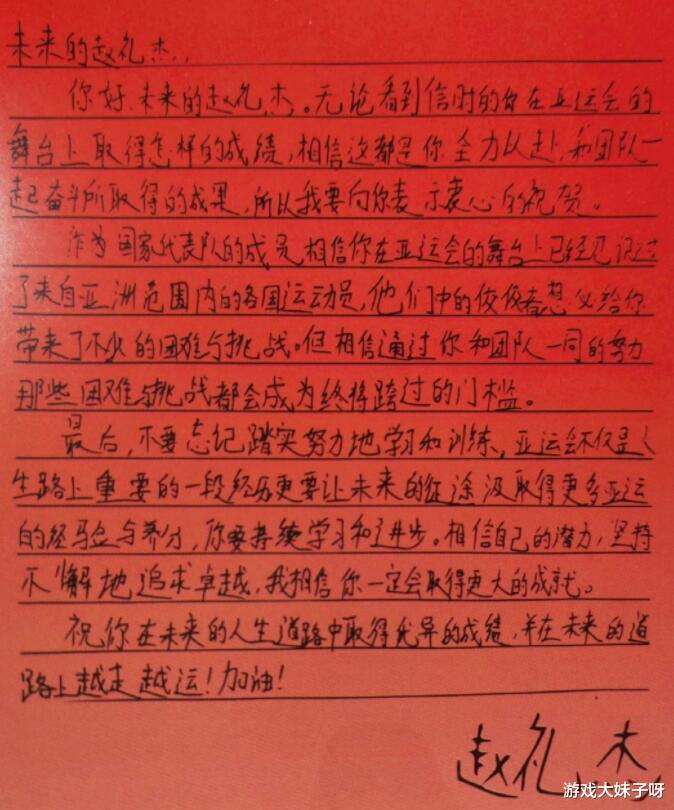 未来的赵礼杰:
你好,未来的赵礼杰。无论看到信时的你在亚运会的
舞台上取得怎样的成绩,相信这都是你全力以赴,和团队一
起奋斗所取得的成果,所以我要向你表示衷心的祝贺。
作为国家代表队的成员,相信你在亚运会的舞台上已经见识过
了来自亚洲范围内的各国运动员,他们中的佼佼者想必给你
带来了不少的困难与挑战。但相信通过你和团队一同的努力
那些困难与挑战都会成为终将跨过的门槛。
最后,不要忘记踏实努力地学习和训练,亚运会不仅是人
生路上重要的一段经历更要让未来的征途汲取得更多亚运
的经验与养分,你要持续学习和进步。相信自己的潜力,坚持
不懈地追求卓越,我相信你一定会取得更大的成就。
祝你在未来的人生道路中取得优异的成绩,并在未来的道
路上越走越远!加油!
赵礼杰
游戏大妹子呀